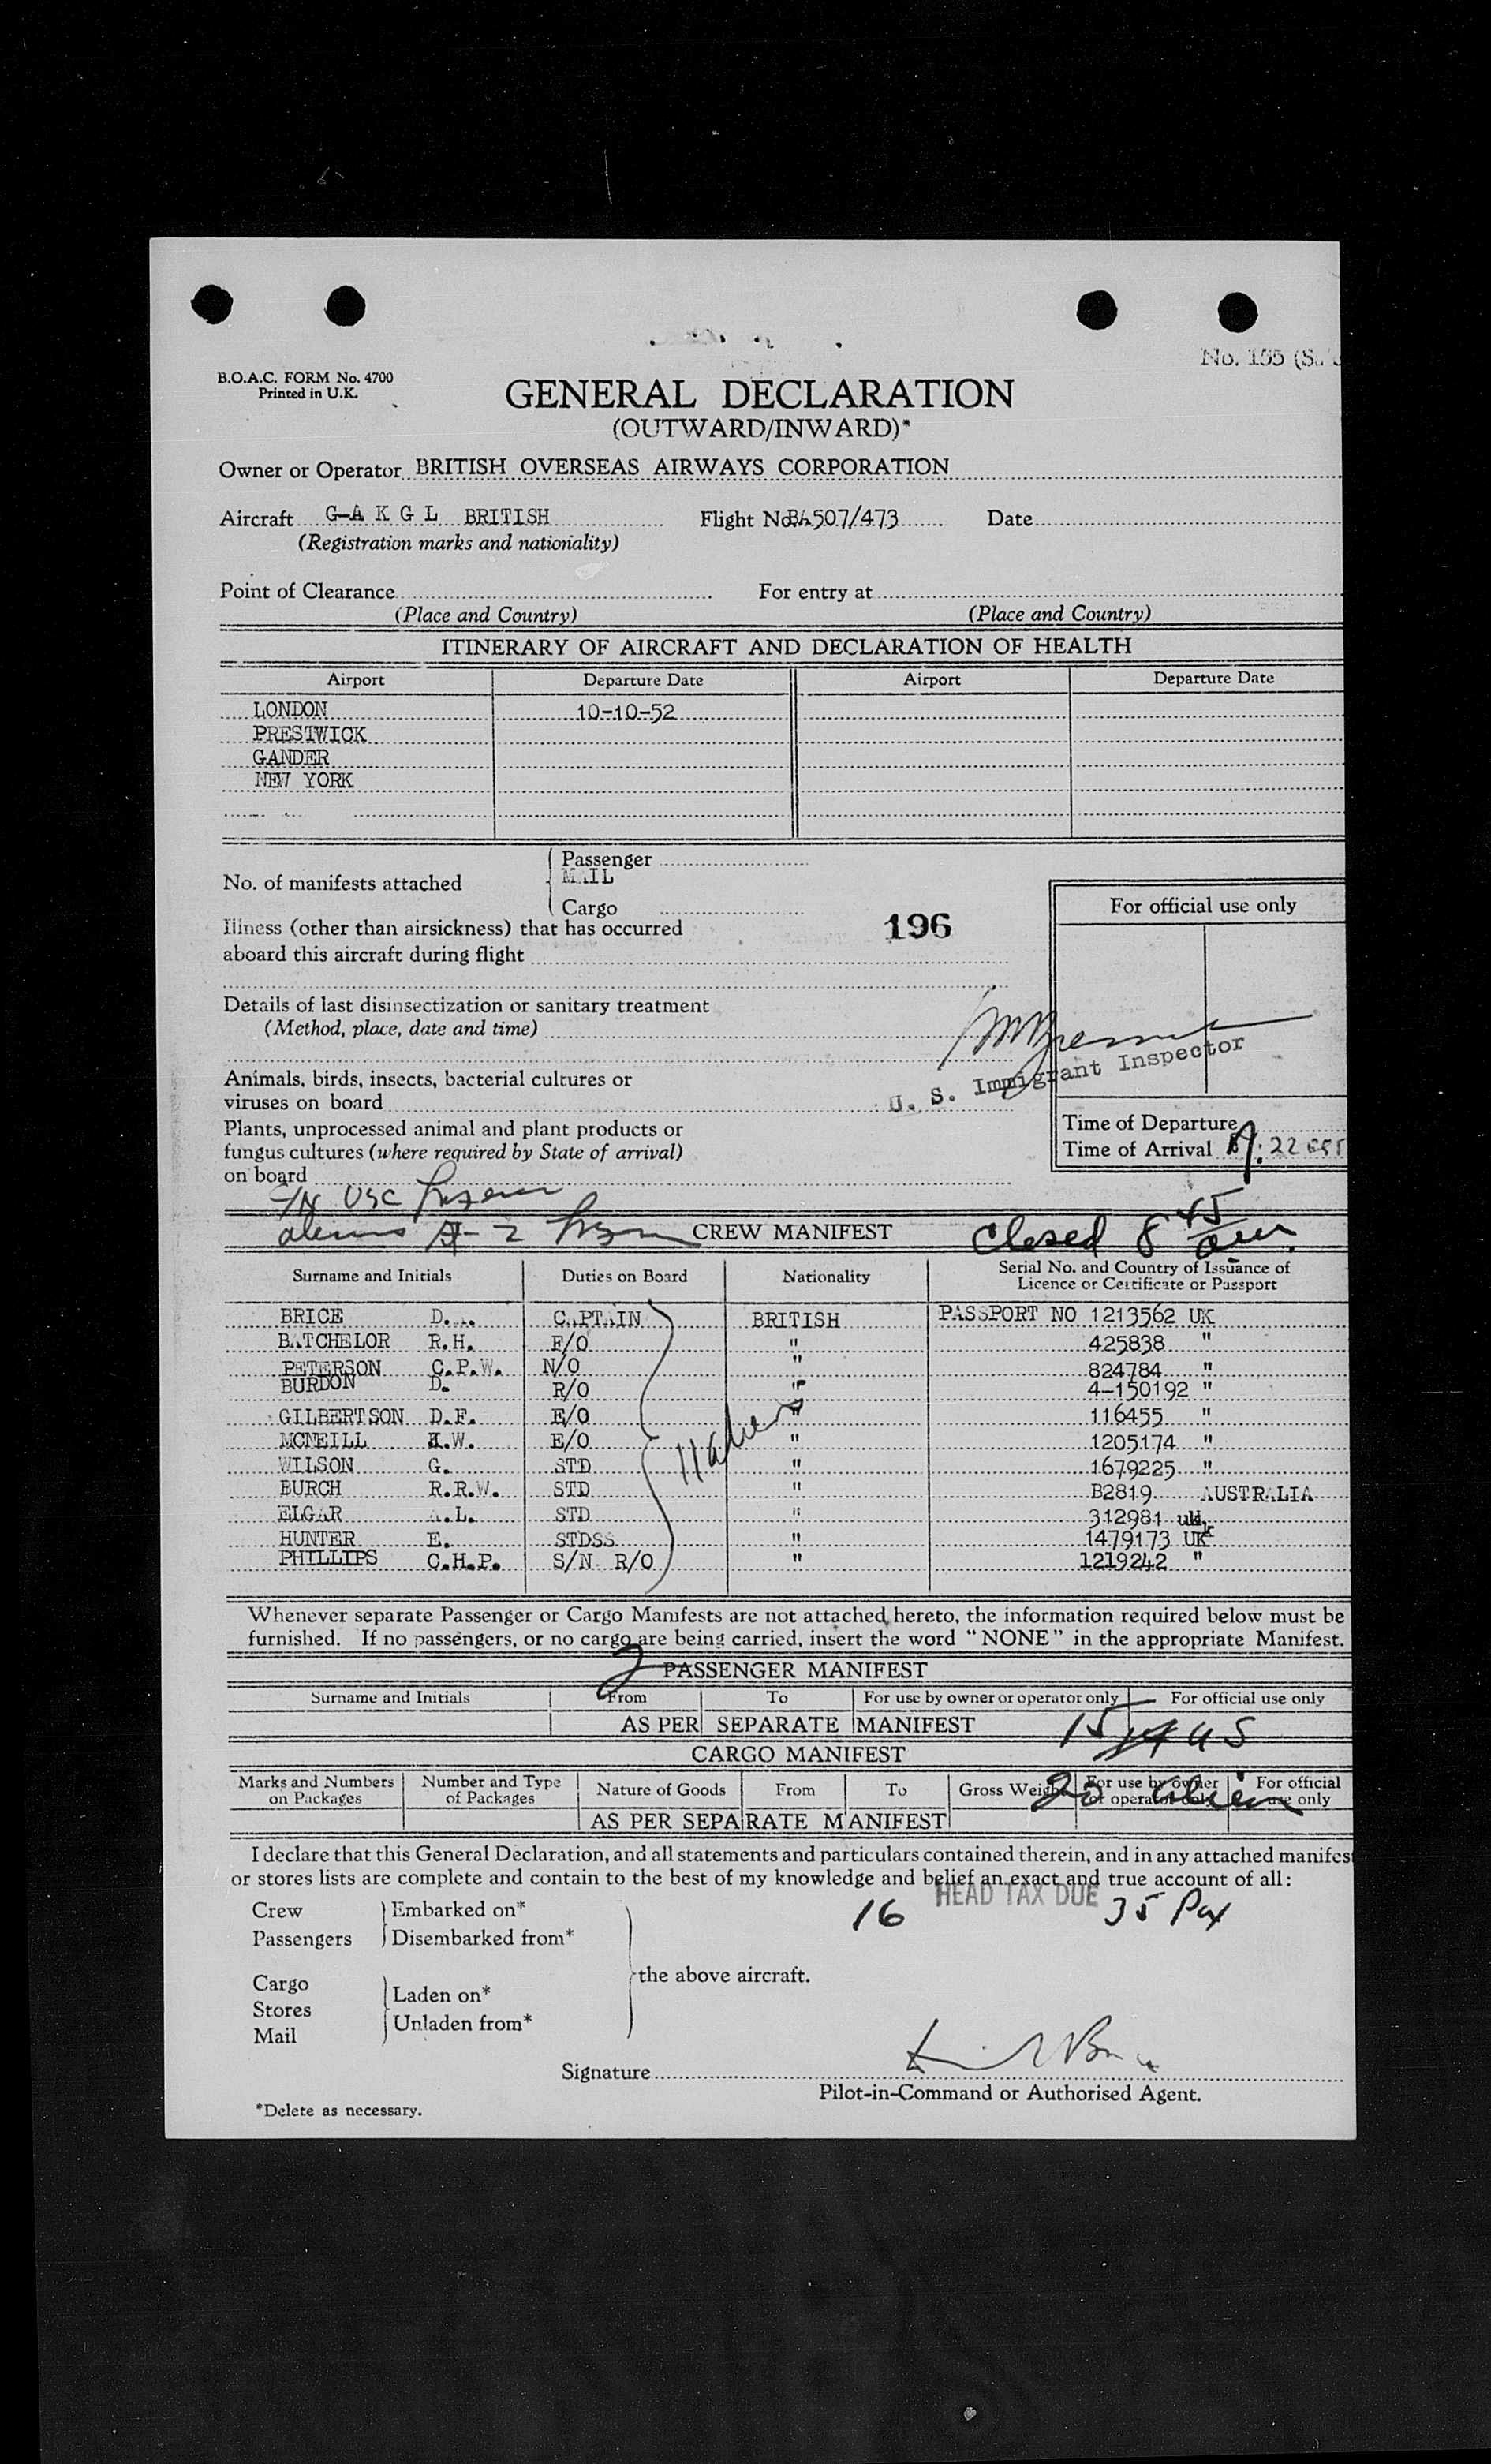 No. 155
B.O.A.C. FORM No. 4700
Printed in U.K.
GENERAL DECLARATION
(OUTWARD/INWARD)*
Owner or Operator BRITISH OVERSEAS AIRWAYS CORPORATION
Aircraft G-A K G L BRITISH Flight No. BA507/473 Date
(Registration marks and nationality)
Point of Clearance For entry at
(Place and Country) (Place and Country)
ITINERARY OF AIRCRAFT AND DECLARATION OF HEALTH
Airport Departure Date Airport Departure Date
LONDON 10-10-52
PRESTWICK
GANDER
NEW YORK
Passenger
No. of manifests attached MAIL
Cargo
For official use only
Illness (other than airsickness) that has occurred 196
aboard this aircraft during flight
Details of last disinsectization or sanitary treatment
(Method, place, date and time)
U. S. Immigrant Inspector
Animals, birds, insects, bacterial cultures or
viruses on board
Plants, unprocessed animal and plant products or
fungus cultures (where required by State of arrival)
on board
Time of Departure
Time of Arrival
USC
CREW MANIFEST Closed 8 45
Surname and Initials Duties on Board Nationality Serial No. and Country of Issuance of
Licence or Certificate or Passport
BRICE D. CAPTAIN BRITISH PASSPORT NO 1213562 UK
BATCHELOR R.H. F/O " 425838 "
PETERSON C.P.W. N/O " 824784 "
BURDON D. R/O " 4-150192 "
GILBERTSON D.F. E/O " 116455 "
MCNEILL W. E/O " 1205174 "
WILSON G. STD " 1679225 "
BURCH R.R.W. STD " B2819 AUSTRALIA
ELGAR A.L. STD " 312981 uk
HUNTER E. STDSS " 1479173 UK
PHILLIPS C.H.P. S/N R/O " 1219242 "
Whenever separate Passenger or Cargo Manifests are not attached hereto, the information required below must be
furnished. If no passengers, or no cargo are being carried, insert the word "NONE" in the appropriate Manifest.
2
PASSENGER MANIFEST
Surname and Initials From To For use by owner or operator only For official use only
AS PER SEPARATE MANIFEST 15 US
CARGO MANIFEST
Marks and Numbers on Packages Number and Type of Packages Nature of Goods From To Gross Weight For use by owner or operator only For official use only
20 alien
AS PER SEPARATE MANIFEST
I declare that this General Declaration, and all statements and particulars contained therein, and in any attached manifes
or stores lists are complete and contain to the best of my knowledge and belief an exact and true account of all:
16 HEAD TAX DUE 35 Pax
Crew Embarked on*
Passengers Disembarked from*
the above aircraft.
Cargo
Stores Laden on*
Mail Unladen from*
Signature
Pilot-in-Command or Authorised Agent.
*Delete as necessary.